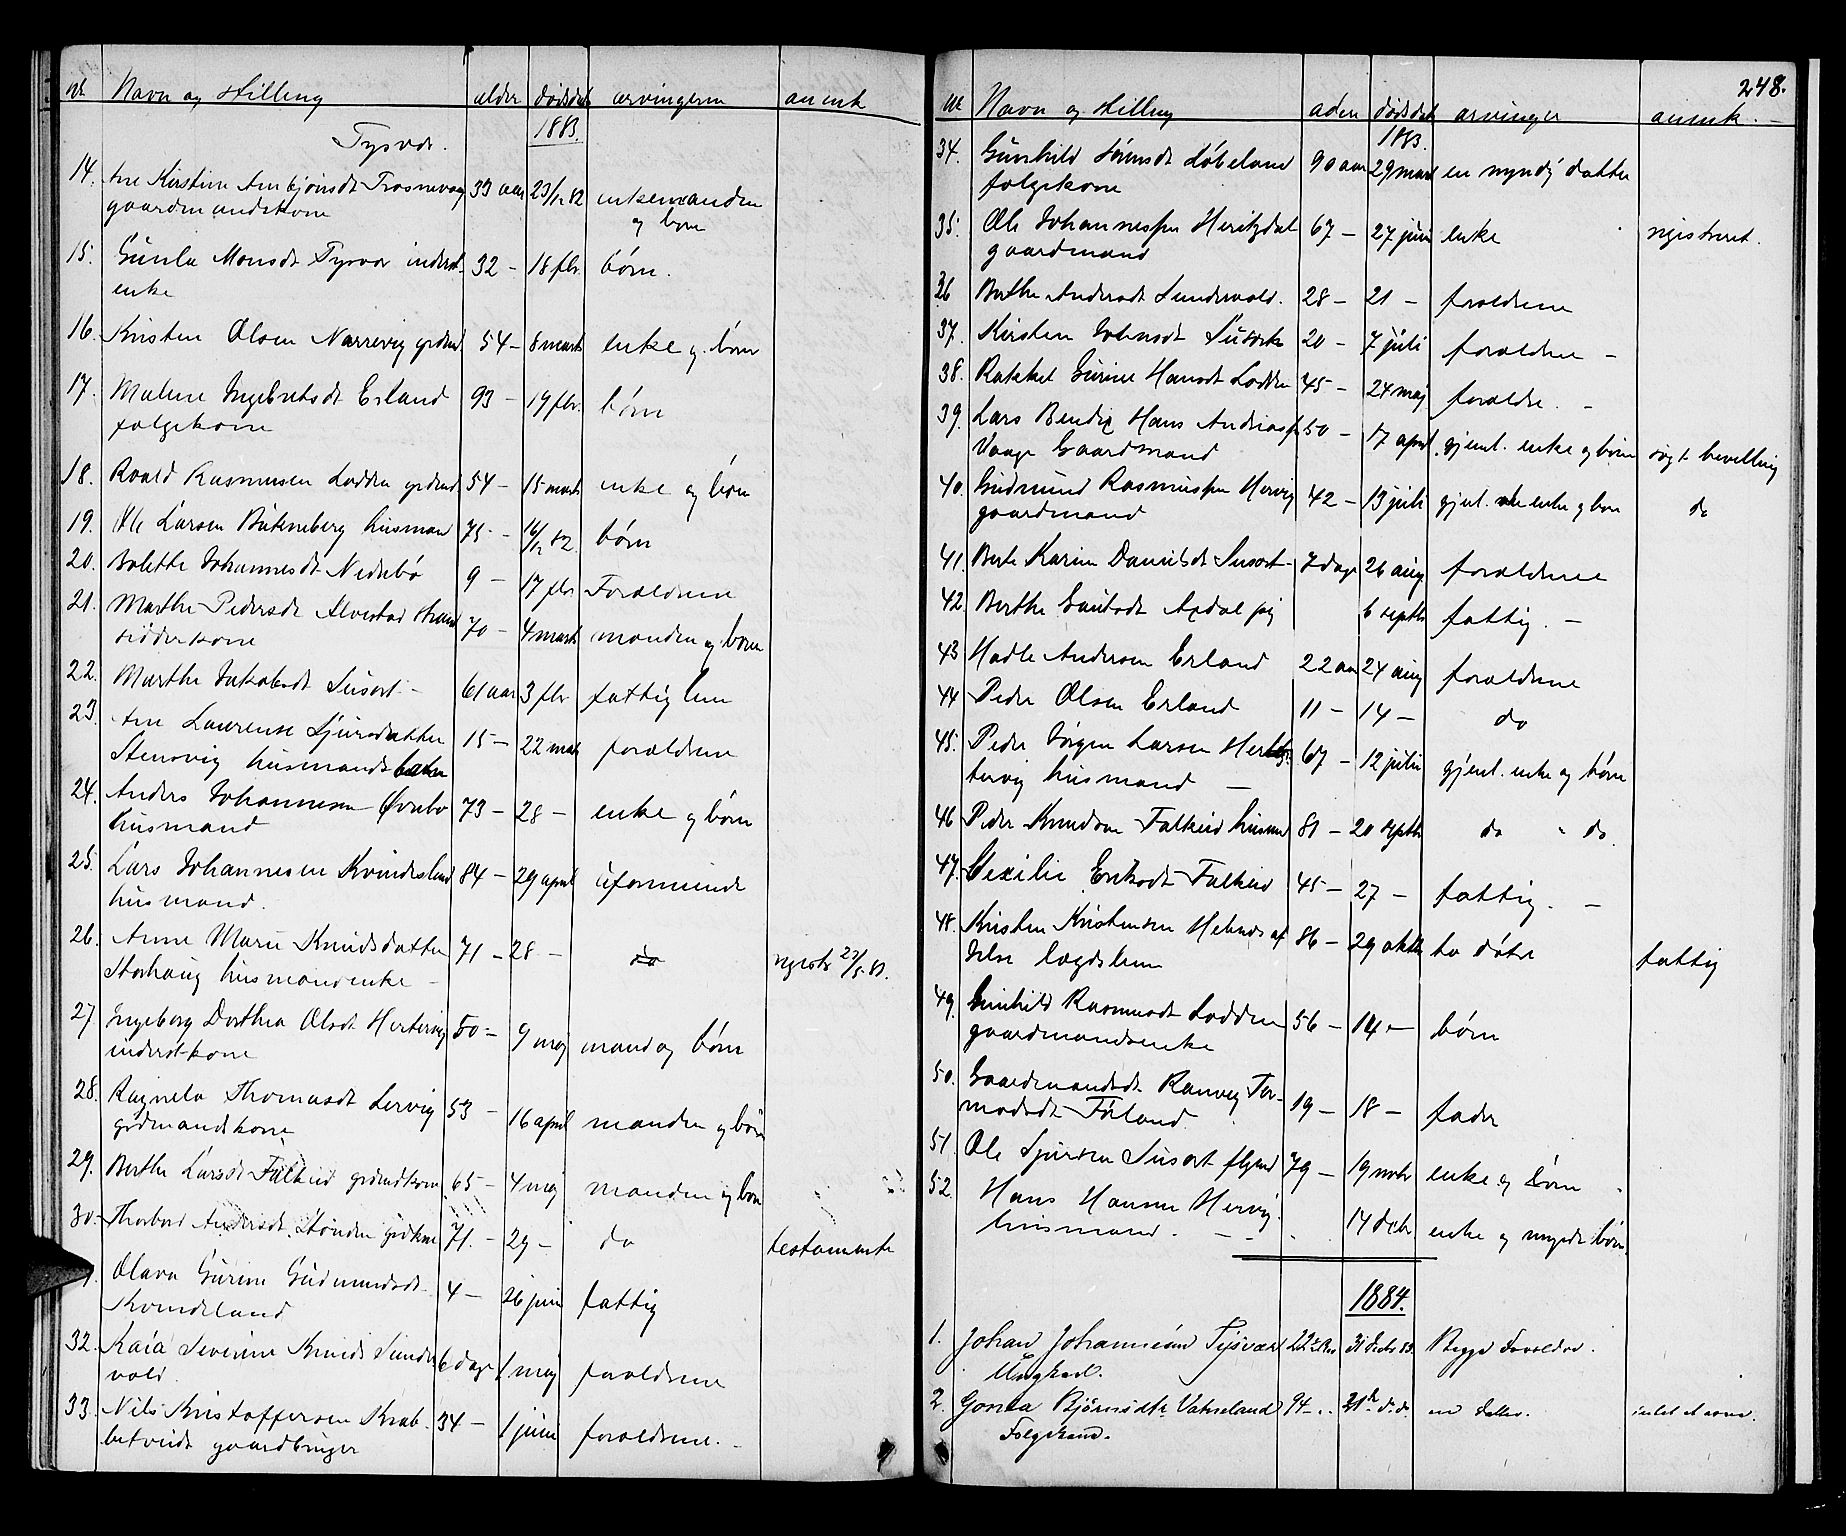 Nr. Navn og stilling alder dødsdat arvingerne anmk
Tysvær. 1883.
14. Ane Kirstine Arnbjørnsdt Trosnevag 33 aar 23/12 82 enkemanden
gaardmandskone og børn
15. Gunla Monsdt Tysvær inderst- 32 - 18 fbr. børn.
enke
16. Kristen Olsen Narrevig grdmd 54 - 8 marts enke og børn
17. Malene Ingebretsdt Erland 93 - 19 fbr. børn
folgekone
18. Roald Rasmusen Lodden grdmd 54 - 15 marts enke og børn
19. Ole Larsen husmand 75 - 16/12 82. børn
20. Bolette Johannesdt Nedrebø 9 - 17 fbr Forældrene
21. Marthe Pedersdt Alvestad strand
sidderkone 70 - 4 marts manden og børn
22. Marthe Jakobsdt Susort - 61 aar 3 fbr fattiglem
23. Ane Laurense Sjursdatter 15 - 22 mai forældrene
Stensvig husmandsdatter
24. Anders Johannesen Øvrebø 73 - 28 - enke og børn
husmand
25. Lars Johannesen Kvindesland 84 - 29 april uformuende
husmand.
26. Anne Marie Knudsdatter 71 - 28 - do registr 23/5. 83.
Storhaug husmandenke -
27 Ingeborg Dorthea Olsdt Hertervig 50 - 9 maj mand og børn
inderstkone
28. Ragnela Thomasdt Lervig 53 - 16 april manden og børn
grdmandskone
29. Berthe Larsdt Falkeid grdmdkone 65 - 4 maj manden og børn
30. Thorbor Andersdt grdkone 71. - 29 - do testamente
Olava Gurine Gudmundsdt. 4 - 26 juni fattig
Kvindesland
32. Kaia Severine Knuds Sunde 6 dage 1 maj forældrene
vold.
33. Nils Kristoffersen Krab- 34 - 1 juni forældrene. -
betveidt gaardbruger
248.
Nr Navn og stilling alder dødsdat arvinger anmk. -
1883.
34. Gunhild Sørensdt Løbeland 90 aar 29 mars en myndig datter
folgekone
35. Ole Johannesen Heritzdal 67 - 27 juni enke registreret.
gaardmand
36 Berthe Andersdt Sundevold. 28 - 21 - forældrene
37. Kirsten Johnsdt Susort 20 - 7 juli forældrene -
38. Rakkel Gurine Hansdt Lodden 45 - 24 maj forældre. -
39. Lars Bendix Hans Andreasen 50 - 17 april gjenl. enke og børn søgt bevilling
Vaage Gaardmand
40. Gudmund Rasmussen Hervig 42 - 13 juli gjenl. enke og børn do
gaardmand
41. Berte Karine Danielsdt Susort - 7 dage 26 aug forældrene
42 Berthe Gautsdt Apdal pig 6 septbr fattig. -
43 Hadle Andersen Erland 22 aar 24 aug forældrene
44 Peder Olsen Erland 11 - 14 - do
45. Peder Jørgen Larsen Her 67 - 12 juli gjenl. enke og børn
tervig husmand -
46 Peder Knudsen Falkeid husmd 81 - 20 septbr do " do.
47. Cecilie Eriksdt Falkeid 45 - 27 - fattig. -
48. Kristen Kristensen Helends af 86 - 29 oktbr to døtre fattig
Jelse lægdslem
49. Gunhild Rasmusdt Lodden 56 - 14 - børn
gaardmandsenke
50. Gaardmandsdt Ranveig Tor- 19 - 18 - fader
modsdt Førland.
51. Ole Sjursen Susort flgmd 79 - 19 novbr enke og børn
52. Hans Hansen Hervig. 14 decbr enke og myndi børn.
husmand. -
1884.
1. Johan Johannesen Tysvær 22 31 decbr 83. Begge Forældre.
Ungkarl.
2. Gonla Bjørnsdtr Vatneland 94 - 31te d. d. en datter. intet at arve.
Folgekone.